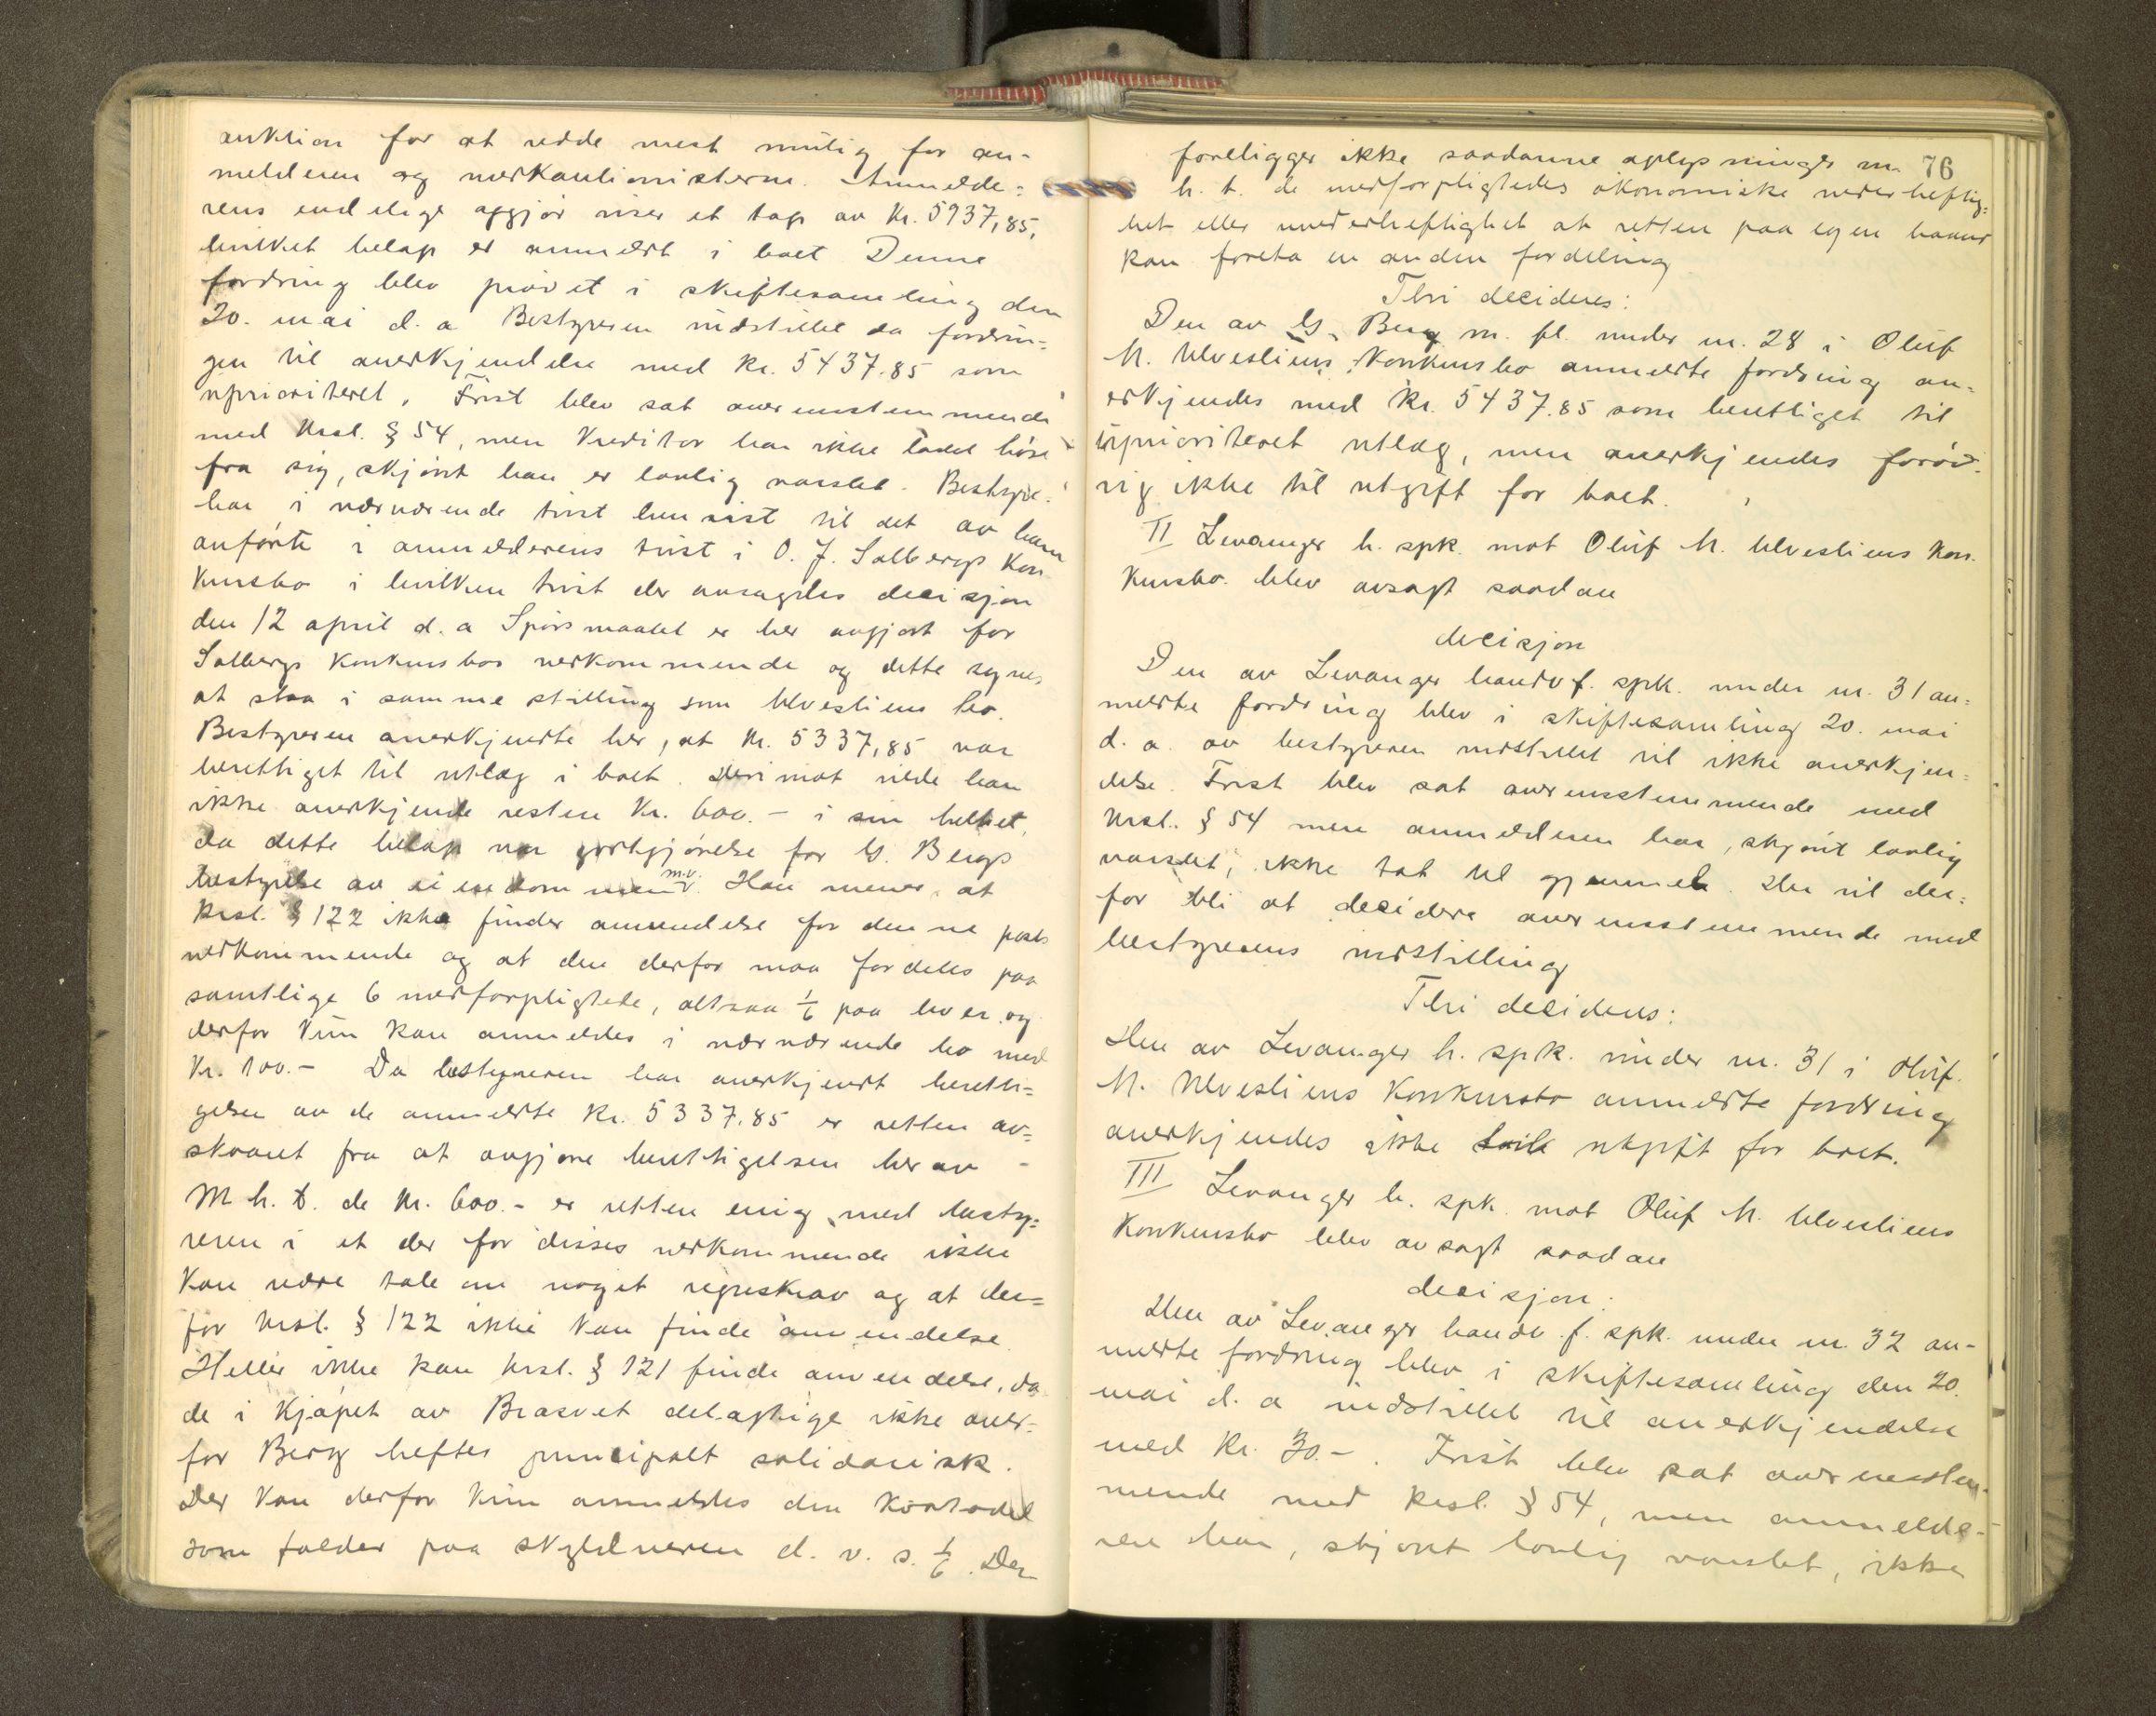 auktion for at redde mest mulig for an-
melderen og medkautionisterne. Anmelde=
rens endelige opgjør viser et tap av Kr. 5937,85,
hvilket beløp er anmeldt i boet. Denne
fordring blev prøvet i skiftesamling den
20. mai d. a. Bestyreren indstillet da fordrin=
gen til anerkjendelse med Kr. 5437.85 som
uprioritert. Frist blev sat overensstemmende
med Krsl. § 54, men Kreditor har ikke ladet høre
fra sig, skjønt han er lovlig varslet. Bestyr.
har i nærværende tvist henvist til det av ham
anførte i anmelderens tvist i O. J. Salbergs Kon
kursbo i hvilken tvist der avsagdes decisjon
den 12 april d. a. Spørsmaalet er her avgjort for
Salbergs Konkursbos vedkommende og dette synes
at staa i samme stilling som Ulvesliens bo.
Bestyreren anerkjendte her, at Kr. 5337,85 var
berettiget til utlæg i boet. Derimot vilde han
ikke anerkjende resten Kr. 600.- i sin helhet,
da dette beløp var godtgjørelse for G. Bergs
bestyrelse av eiendommen m.v. Han mener, at
Krsl. § 122 ikke finder anvendelse for denne posts
vedkommende og at den derfor maa fordeles paa
samtlige 6 medforpligtede, altsaa 1/6 paa hver og
derfor Kun kan anmeldes i nærværende bo med
Kr. 100.- Da bestyreren har anerkjendt beretti=
gelsen av de anmeldte Kr. 5337.85 er retten av=
skaaret fra at avgjøre berettigelsen herav -
M h. t. de Kr. 600.- er retten enig med besty=
reren i at der for disses vedkommende ikke
Kan være tale om noget regreskrav og at der=
for Krsl. § 122 ikke Kan finde anvendelse.
Heller ikke kan Krsl. § 121 finde anvendelse, da
de i Kjøpet av Brasvet delagtige ikke over=
for Berg hefter principalt solidarisk.
Der Kan derfor Kun anmeldes den Kvotadel
som falder paa skyldneren d. v. s. 1/6. Der
76
foreligger ikke saadanne oplysninger m.
h. t. de medforpligtedes økonomiske vederheftig=
het eller uvederheftighet at retten paa egen haand
kan foreta en anden fordeling
Thi decideres:
Den av G. Berg m. fl. under nr. 28 i Oluf
M. Ulvesliens Konkursbo anmeldte fordring an=
erkjendes med Kr. 5437.85 som berettiget til
uprioritert utlæg, men anerkjendes forøv-
rig ikke til utgift for boet.
II Levanger h. spk. mot Oluf M. Ulvesliens Kon-
kursbo blev avsagt saadan
decisjon
Den av Levanger handv f. spk. under nr. 31 an=
meldte fordring blev i skiftesamling 20. mai
d. a. av bestyreren indstillet til ikke anerkjen=
delse. Frist blev sat overensstemmende med
Krsl. § 54 men anmelderen har, skjønt lovlig
varslet, ikke tat til gjenmele. Der vil der=
for bli at decidere overensstemmende med
bestyrerens indstilling
Thi decideres:
Den av Levanger h. spk. under nr. 31 i Oluf
M. Ulvesliens Konkursbo anmeldte fordring
anerkjendes ikke utgift for boet.
III Levanger h. spk. mot Oluf M. Ulvesliens
Konkursbo blev avsagt saadan
decisjon:
Den av Levanger handv. f. spk. under nr. 32 an-
meldte fordring blev i skiftesamling den 20.
mai d. a. indstillet til anerkjendelse
med Kr. 30.-. Frist blev sat overensstem-
mende med Krsl. § 54, men anmelde-
ren har, skjønt lovlig varslet, ikke